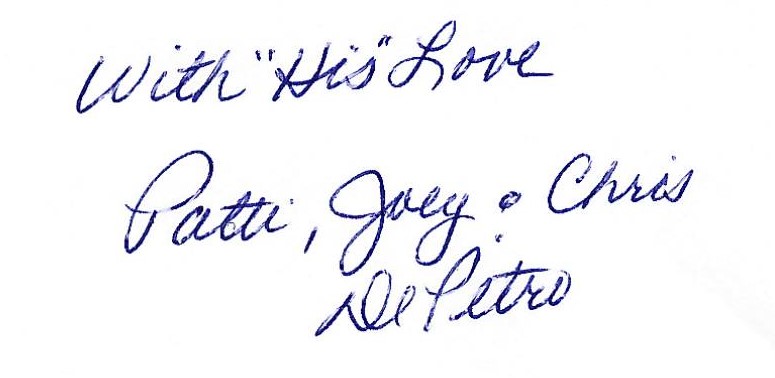 With "His" Love
Patti, Joey & Chris
DePetro